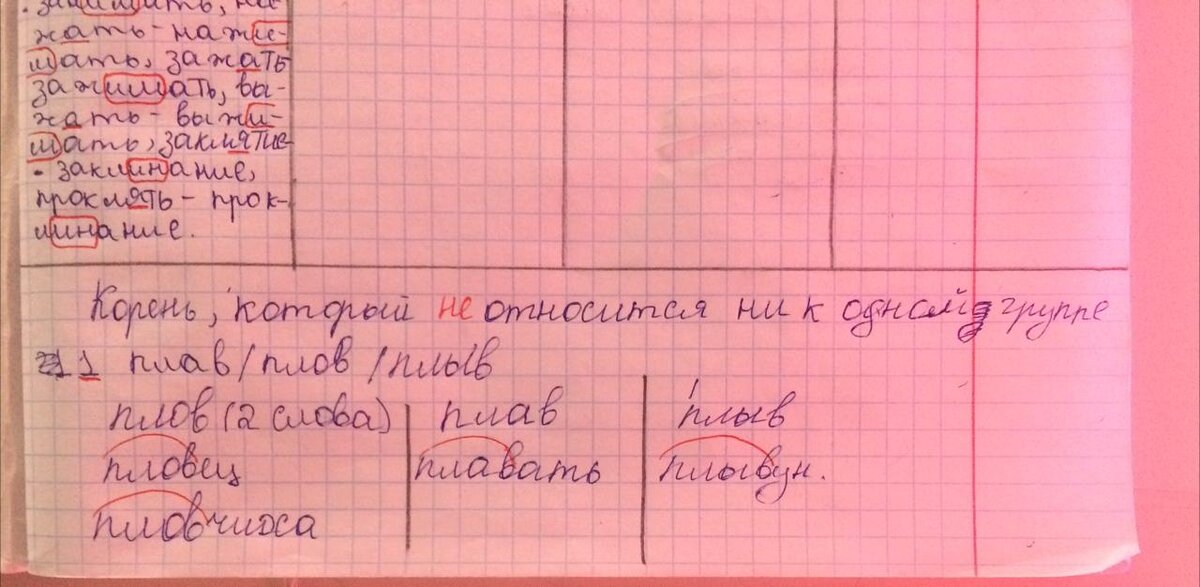 жать - нажи-
мать, зажать
зажимать, вы-
жать - выжи-
мать, заклятие
- заклинание,
проклять - прок-
линание.
Корень, который не относится ни к одной группе
1 плав/плов/плыв
плов (2 слова) плав плыв
пловец плавать плывун.
пловчиха